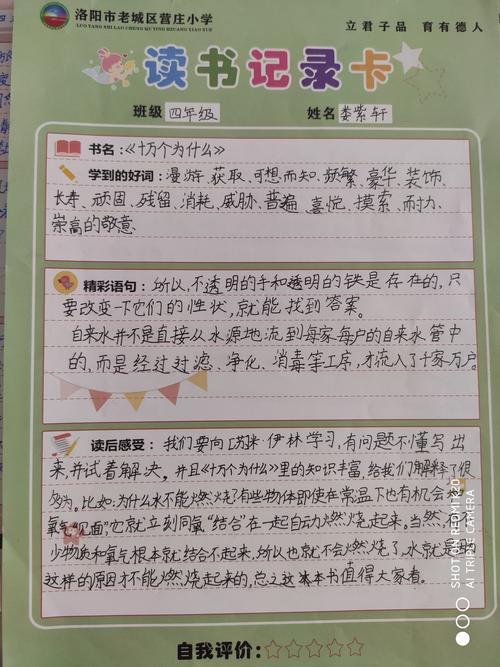 洛阳市老城区营庄小学
LUO YANG SHI LAO CHENG QU YING ZHUANG XIAO XUE
立君子品 育有德人
读书记录卡
班级 四年级 姓名 娄紫轩
书名:《十万个为什么》
学到的好词:漫游、获取、可想而知、频繁、豪华、装饰、
长寿、顽固、残留、消耗、威胁、普遍、喜悦、摸索、耐力、
崇高的敬意
精彩语句:所以,不透明的手和透明的铁是存在的,只
要改变一下它们的性状,就能找到答案。
自来水并不是直接从水源地流到每家每户的自来水管中
的,而是经过过滤、净化、消毒等工序,才流入了千家万户。
读后感受:我们要向苏米·伊林学习,有问题不懂写出
来,并试着解决。并且《十万个为什么》里的知识丰富,给我们解释了很
多为。比如:为什么水不能燃烧?有些物体即使在常温下也有机会
氧气"见面",它就立刻同氧"结合"在一起自动燃烧起来,当然,
少物质和氧气根本就结合不起来,所以也就不会燃烧了,水就是
这样的原因才不能燃烧起来的,总之这本书值得大家看。
自我评价:☆☆☆☆☆
SHOT ON REDMI K20
AI TRIPLE CAMERA